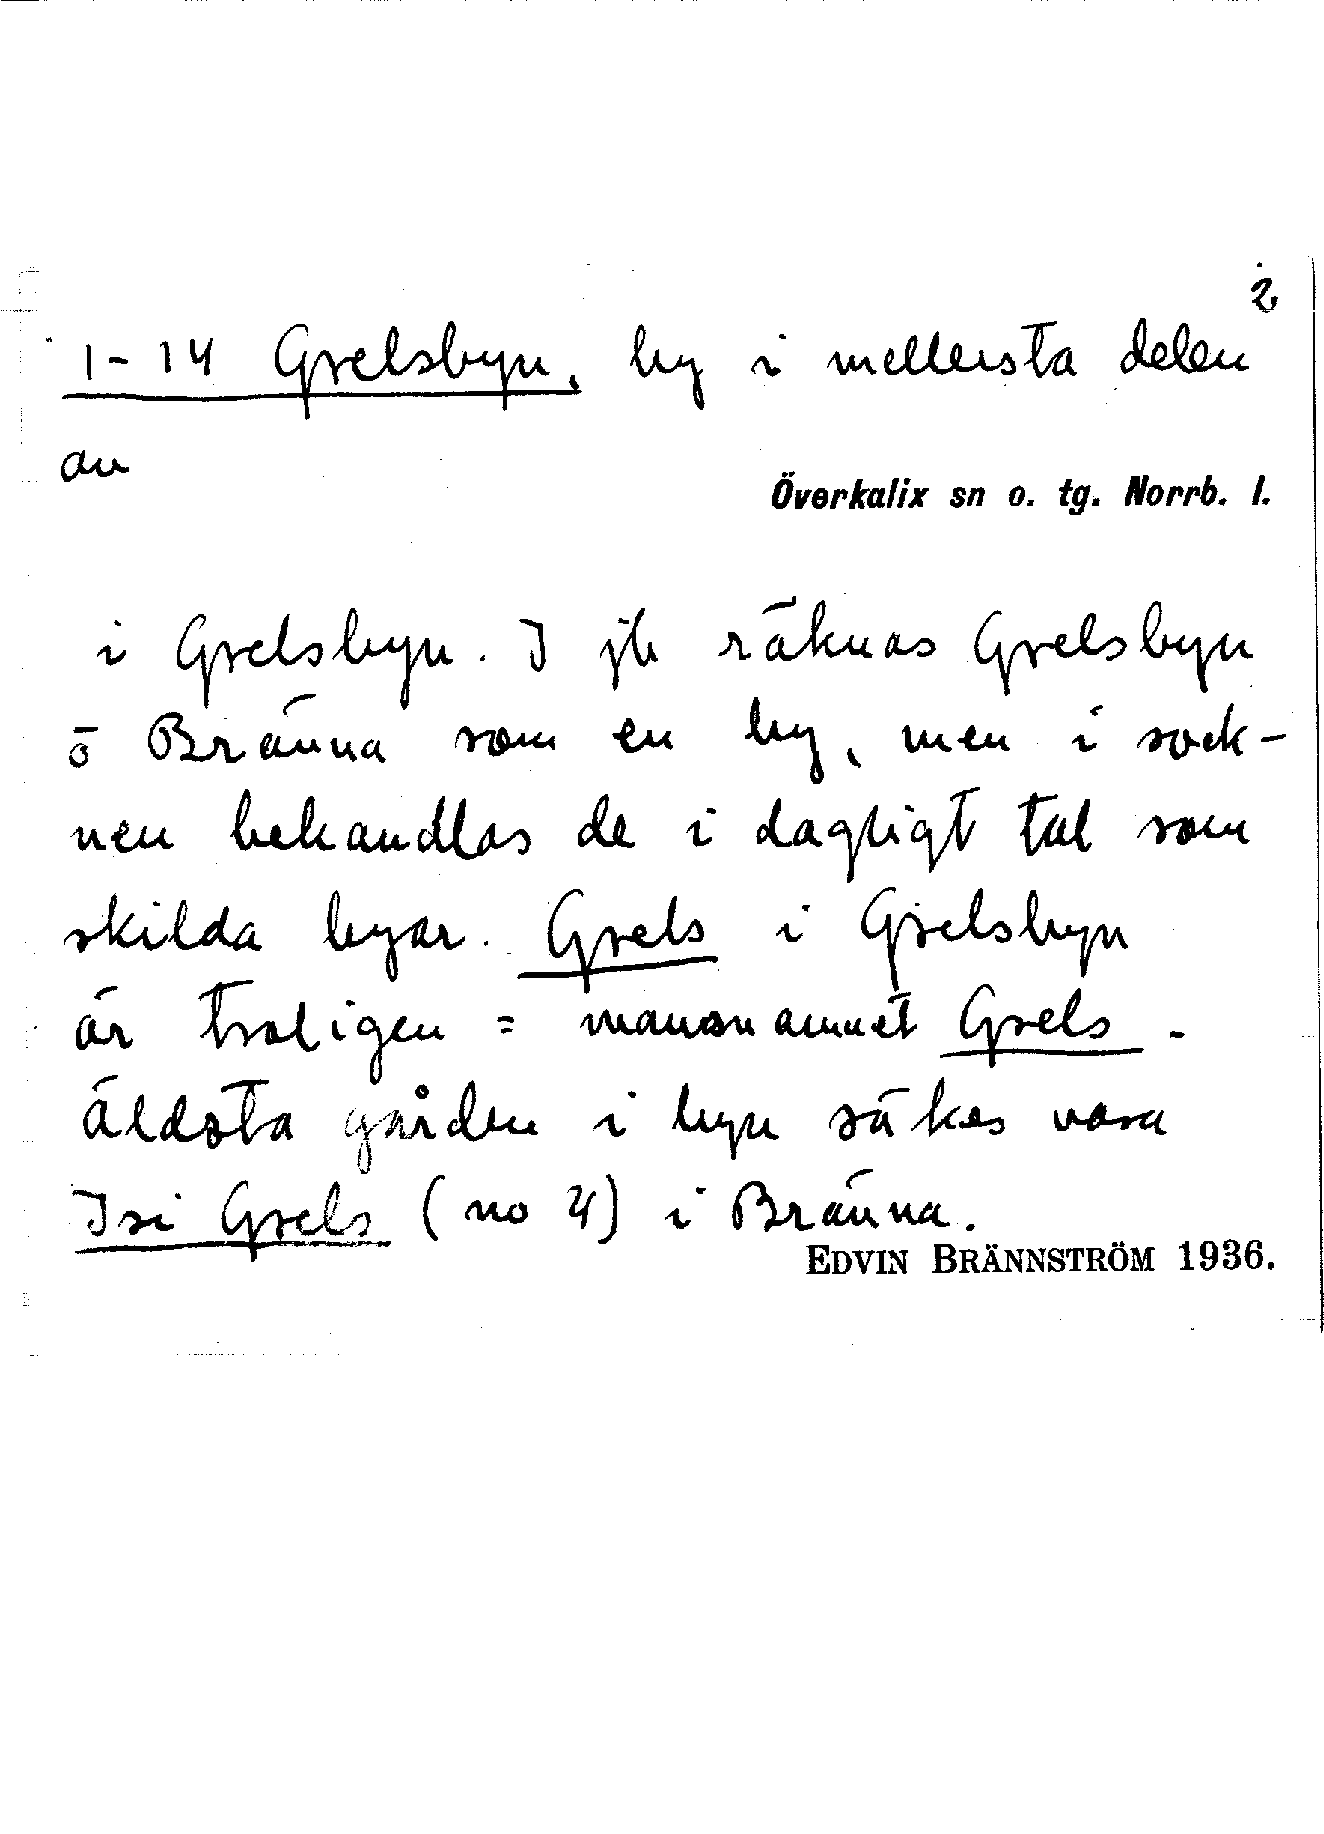 2
1-14 Grelsbyn, by i mellersta delen
av
Överkalix sn o. tg. Norrb. l.
i Grelsbyn. I jb räknas Grelsbyn
o Bränna som en by, men i sock-
nen behandlas de i dagligt tal som
skilda byar. Grels i Grelsbyn
är troligen = mansnamnet Grels -
äldsta gården i byn säkes vara
Isi Grels (no 4) i Bränna.
EDVIN BRÄNNSTRÖM 1936.